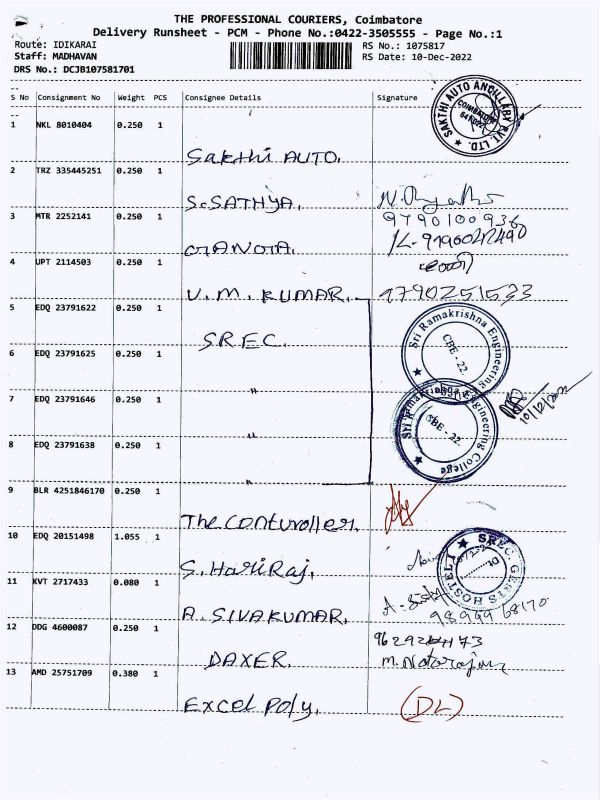 THE PROFESSIONAL COURIERS, Coimbatore
Delivery Runsheet - PCM - Phone No.:0422-3505555 - Page No.:1
Route: IDIKARAI RS No.: 1075817
Staff: MADHAVAN RS Date: 10-Dec-2022
DRS No.: DCJB107581701
S No Consignment No Weight PCS Consignee Details Signature
SAKTHI AUTO ANCILLARY PVT. LTD.
COIMBATORE
1 NKL 8010404 0.250 1
Sakthi AUTO.
2 TRZ 335445251 0.250 1
S.SATHYA.
3 MTR 2252141 0.250 1
9790100936
4 UPT 2114503 0.250 1
V.M. KUMAR. 9790251533
5 EDQ 23791622 0.250 1
SREC.
Sri Ramakrishna Engineering
CBE - 22.
6 EDQ 23791625 0.250 1
7 EDQ 23791646 0.250 1
"
10/12/2022
Sri Ramakrishna Engineering College
CBE - 22.
8 EDQ 23791638 0.250 1
"
"
9 BLR 4251846170 0.250 1
The Conturoller.
10 EDQ 20151498 1.055 1
S. HariRaj.
SREC. GIRLS HOSTEL
11 KVT 2717433 0.080 1
A. SIVAKUMAR.
12 DDG 4600087 0.250 1
DAXER.
M. Natarajan
13 AMD 25751709 0.380 1
Excel Poly.
(DL)